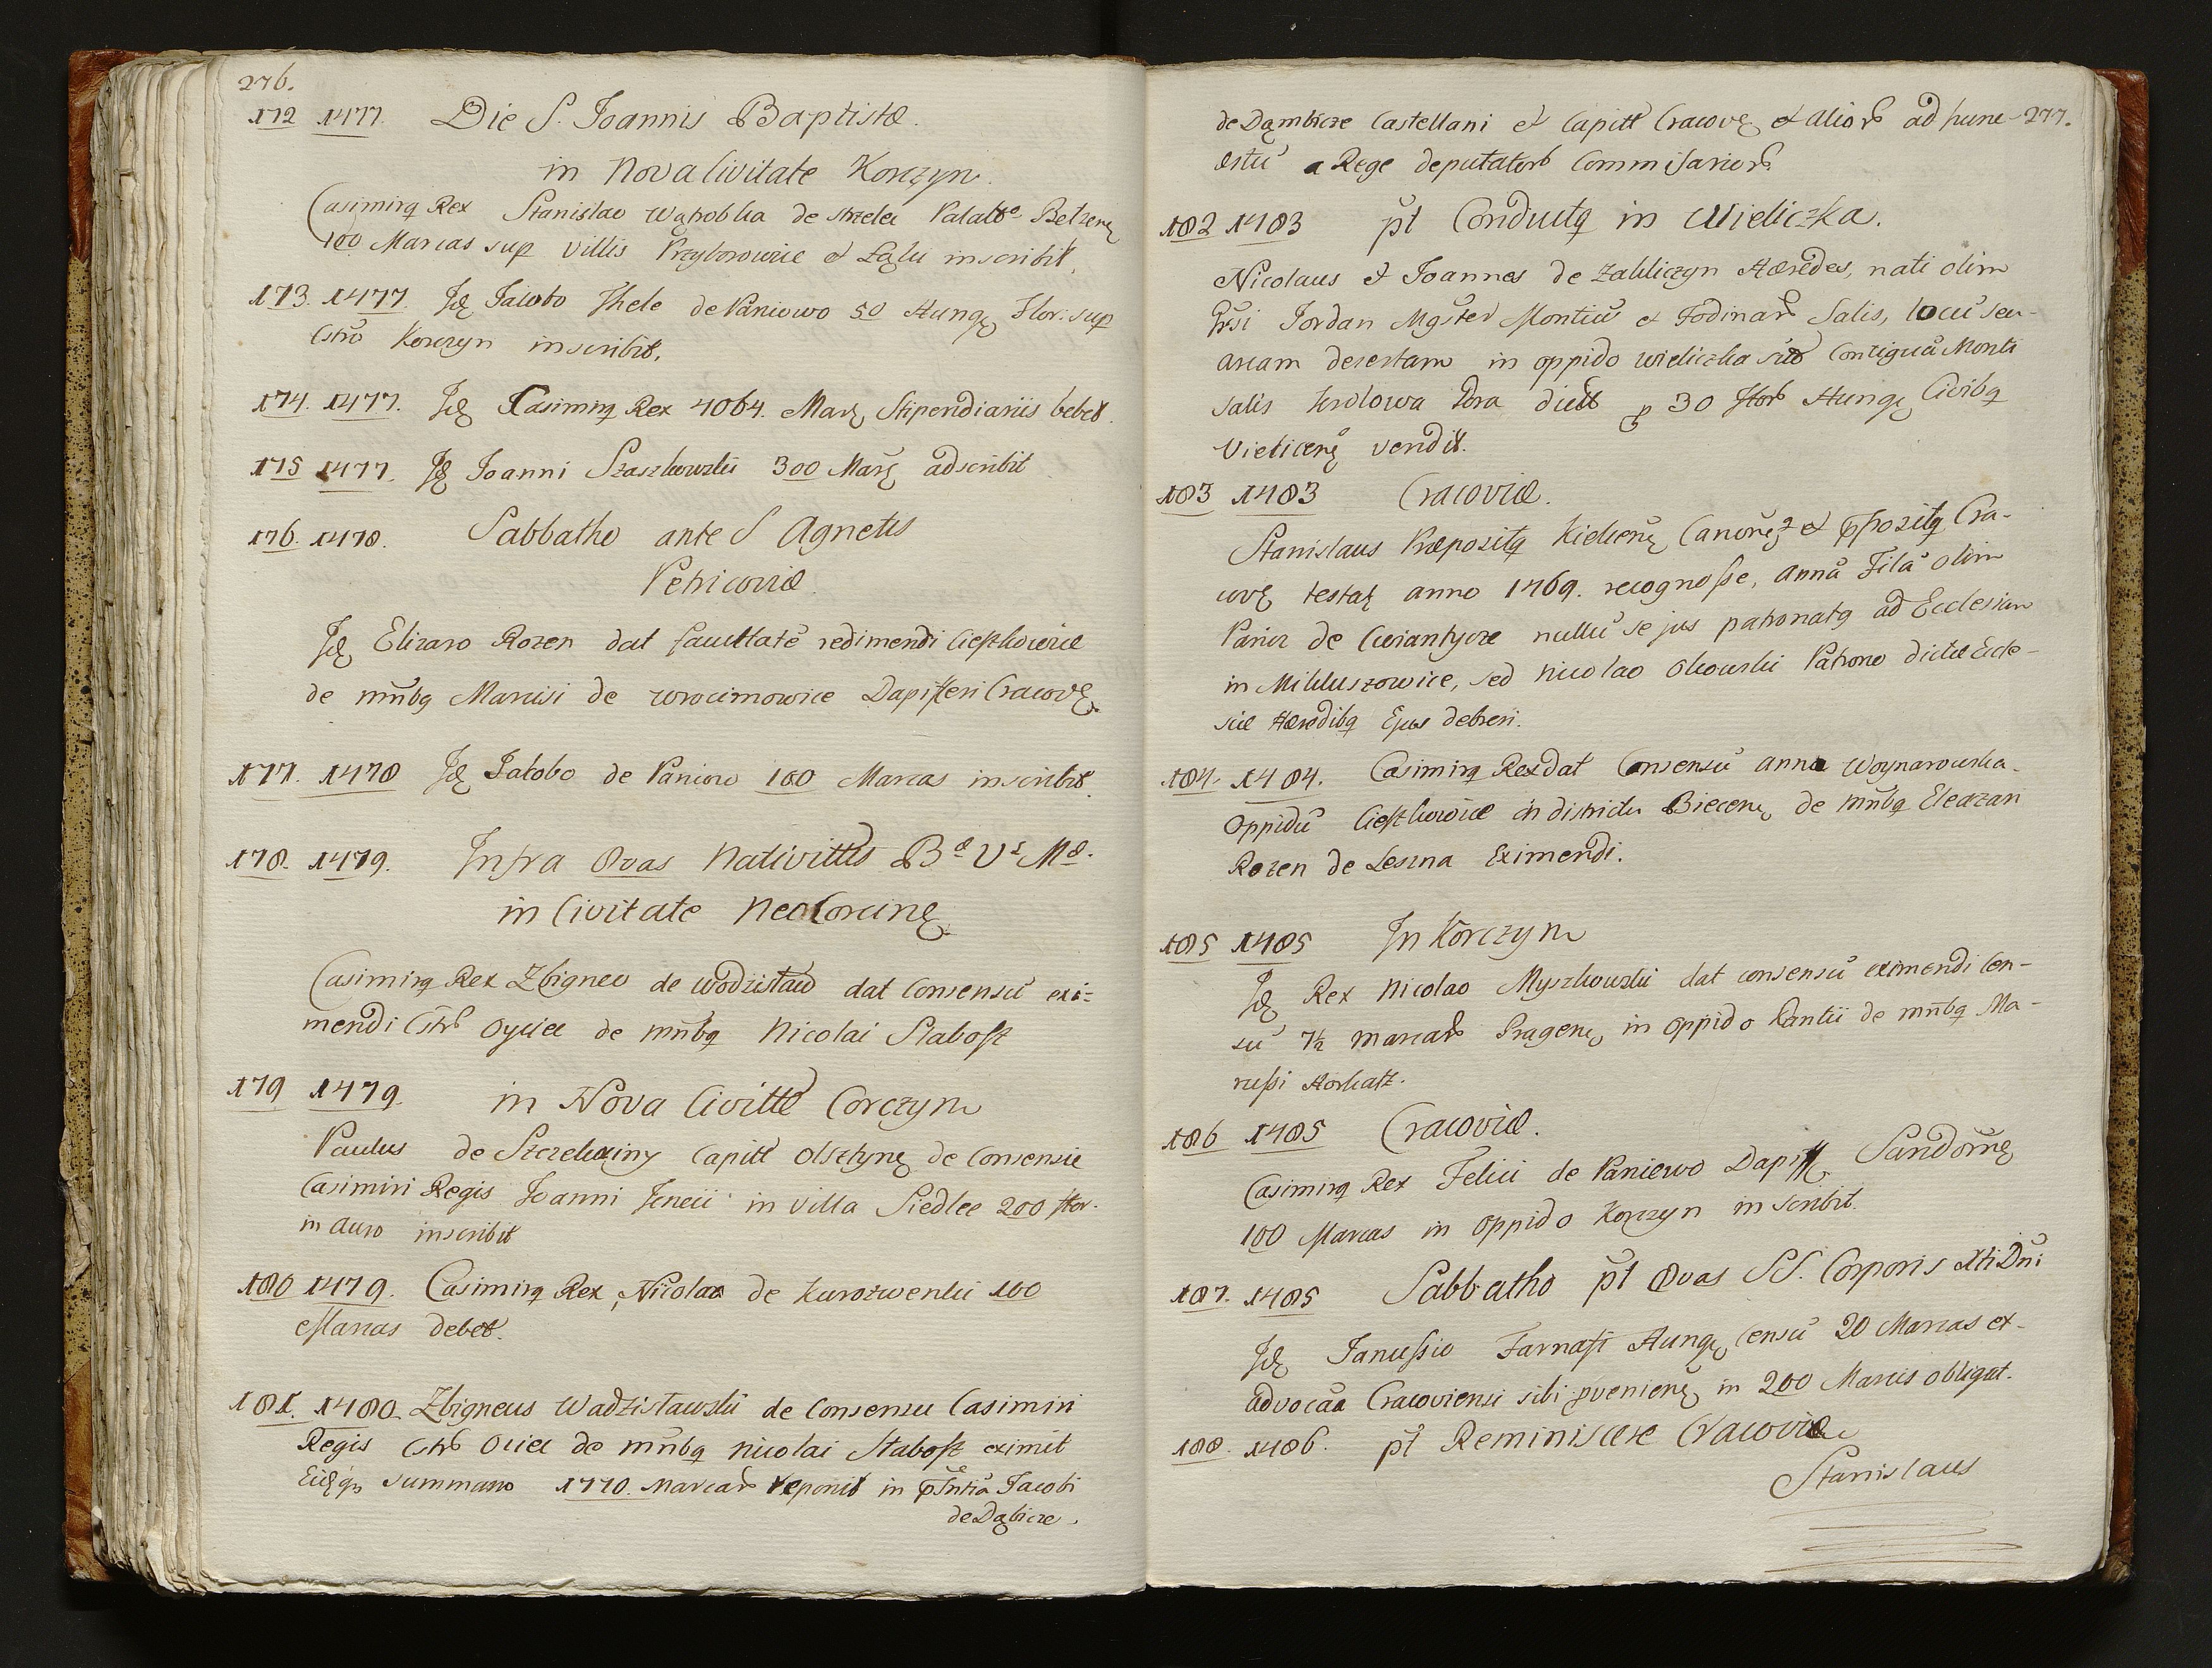 276.
172 1477. Die S. Joannis Baptistæ.
in Nova Civitate Korczyn.
Casimirq Rex Stanislao Wątrobka de Strzelce Palatᵒ Belzenę
100 Marcas sup Villis Przyborowice et Łąki inscribit.
173. 1477. Idę Jacobo Thele de Paniowo 50 Hungę Flor. sup
Cstrō Korczyn inscribit.
174. 1477. Idę Casimirq Rex 4064. Marę Stipendiariis debet.
175 1477. Idę Joanni Staszkowski 300 Marę adscribit
176. 1478. Sabbatho ante S Agnetis
Petricoviæ.
Idę Elizaro Rozen dat facultatē redimendi Cieszkowice
de mnibq Marcisi de Wrocimowice Dapiferi Cracovę.
177. 1478 Idę Jakobo de Paniow 100 Marcas inscribit.
178. 1479. Infra 8vas Nativittis Bᵉ Vˢ Mᵉ.
in Civitate NeoCorcinę
Casimirq Rex Zbigneo de Wodzisław dat Consensū exi=
mendi Cstrō Oycice de mnibq Nicolai Słabosz
179 1479. in Nova Civitte Corczyn
Paulus de Strzekuciny Capitt Olsztynę de Consensu
Casimiri Regis Joanni Jeneii in villa Siedlee 200 flor.
in auro inscribit
180 1479. Casimirq Rex, Nicolao de Kurozwenki 100
Marcas debet.
181. 1480. Zbigneus Wadzisławski de Consensu Casimiri
Regis Cstrō Ociec de mnibq Nicolai Słabosz eximit
summam 1770. Marcarō reponit in Jacobi
de Dąbicze.
de Dąmbicze Castellani et Capitt Cracovę et aliorō ad hunc 277.
actū a Rege deputatorō Commissariorō
182 1483 pt Conductq in Wieliczka.
Nicolaus et Joannes de Zakliczyn Hæredes, nati olim
Jordan Mgster Montiū et Fodinarō Salis, locū seu
aream desertam in oppido Wieliczka sitā Contiguā Monti
salis Krolowa Gora dictō p 30 florō Hungę Civibq
Vielicenę vendit.
183 1483 Cracoviæ.
Stanislaus Præpositq Kielcenę Canonę et Cra-
covę testatę anno 1469. recognosse, Annā Filā olim
Panicz de Cwiantycze nullū se jus patronatq ad Ecclesian
in Mikluszowice, sed Nicolao Okowski Patrono dictæ Eccle-
siæ Hæredibq Ejus deberi.
184. 1484. Casimirq Rex dat Consensū Anna Woynarowska
Oppidū Cieszkowice in districtu Biecenę de mnibq Eleazan
Rozen de Leszna Eximendi.
185 1485 In Korczyn
Idę Rex Nicolao Myszkowski dat consensū eximendi Cen-
sū 7½ Marcarō Pragenę in oppido Kantii de mnibq Ma-
russi Horkatz.
186 1485 Cracoviæ.
Casimirq Rex Felici de Paniewo Dapiff. Sandomę
100 Marcas in oppido Korczyn inscribit.
187. 1485 Sabbatho pt 8vas SS. Corporis Xti Dni
Idę Janussio Farnast Hungę Censū 20 Marcas ex-
advocaa Cracoviensi sibi pvenienę in 200 Marcis obligat.
188. 1486. pt Reminiscere Cracoviæ
Stanislaus